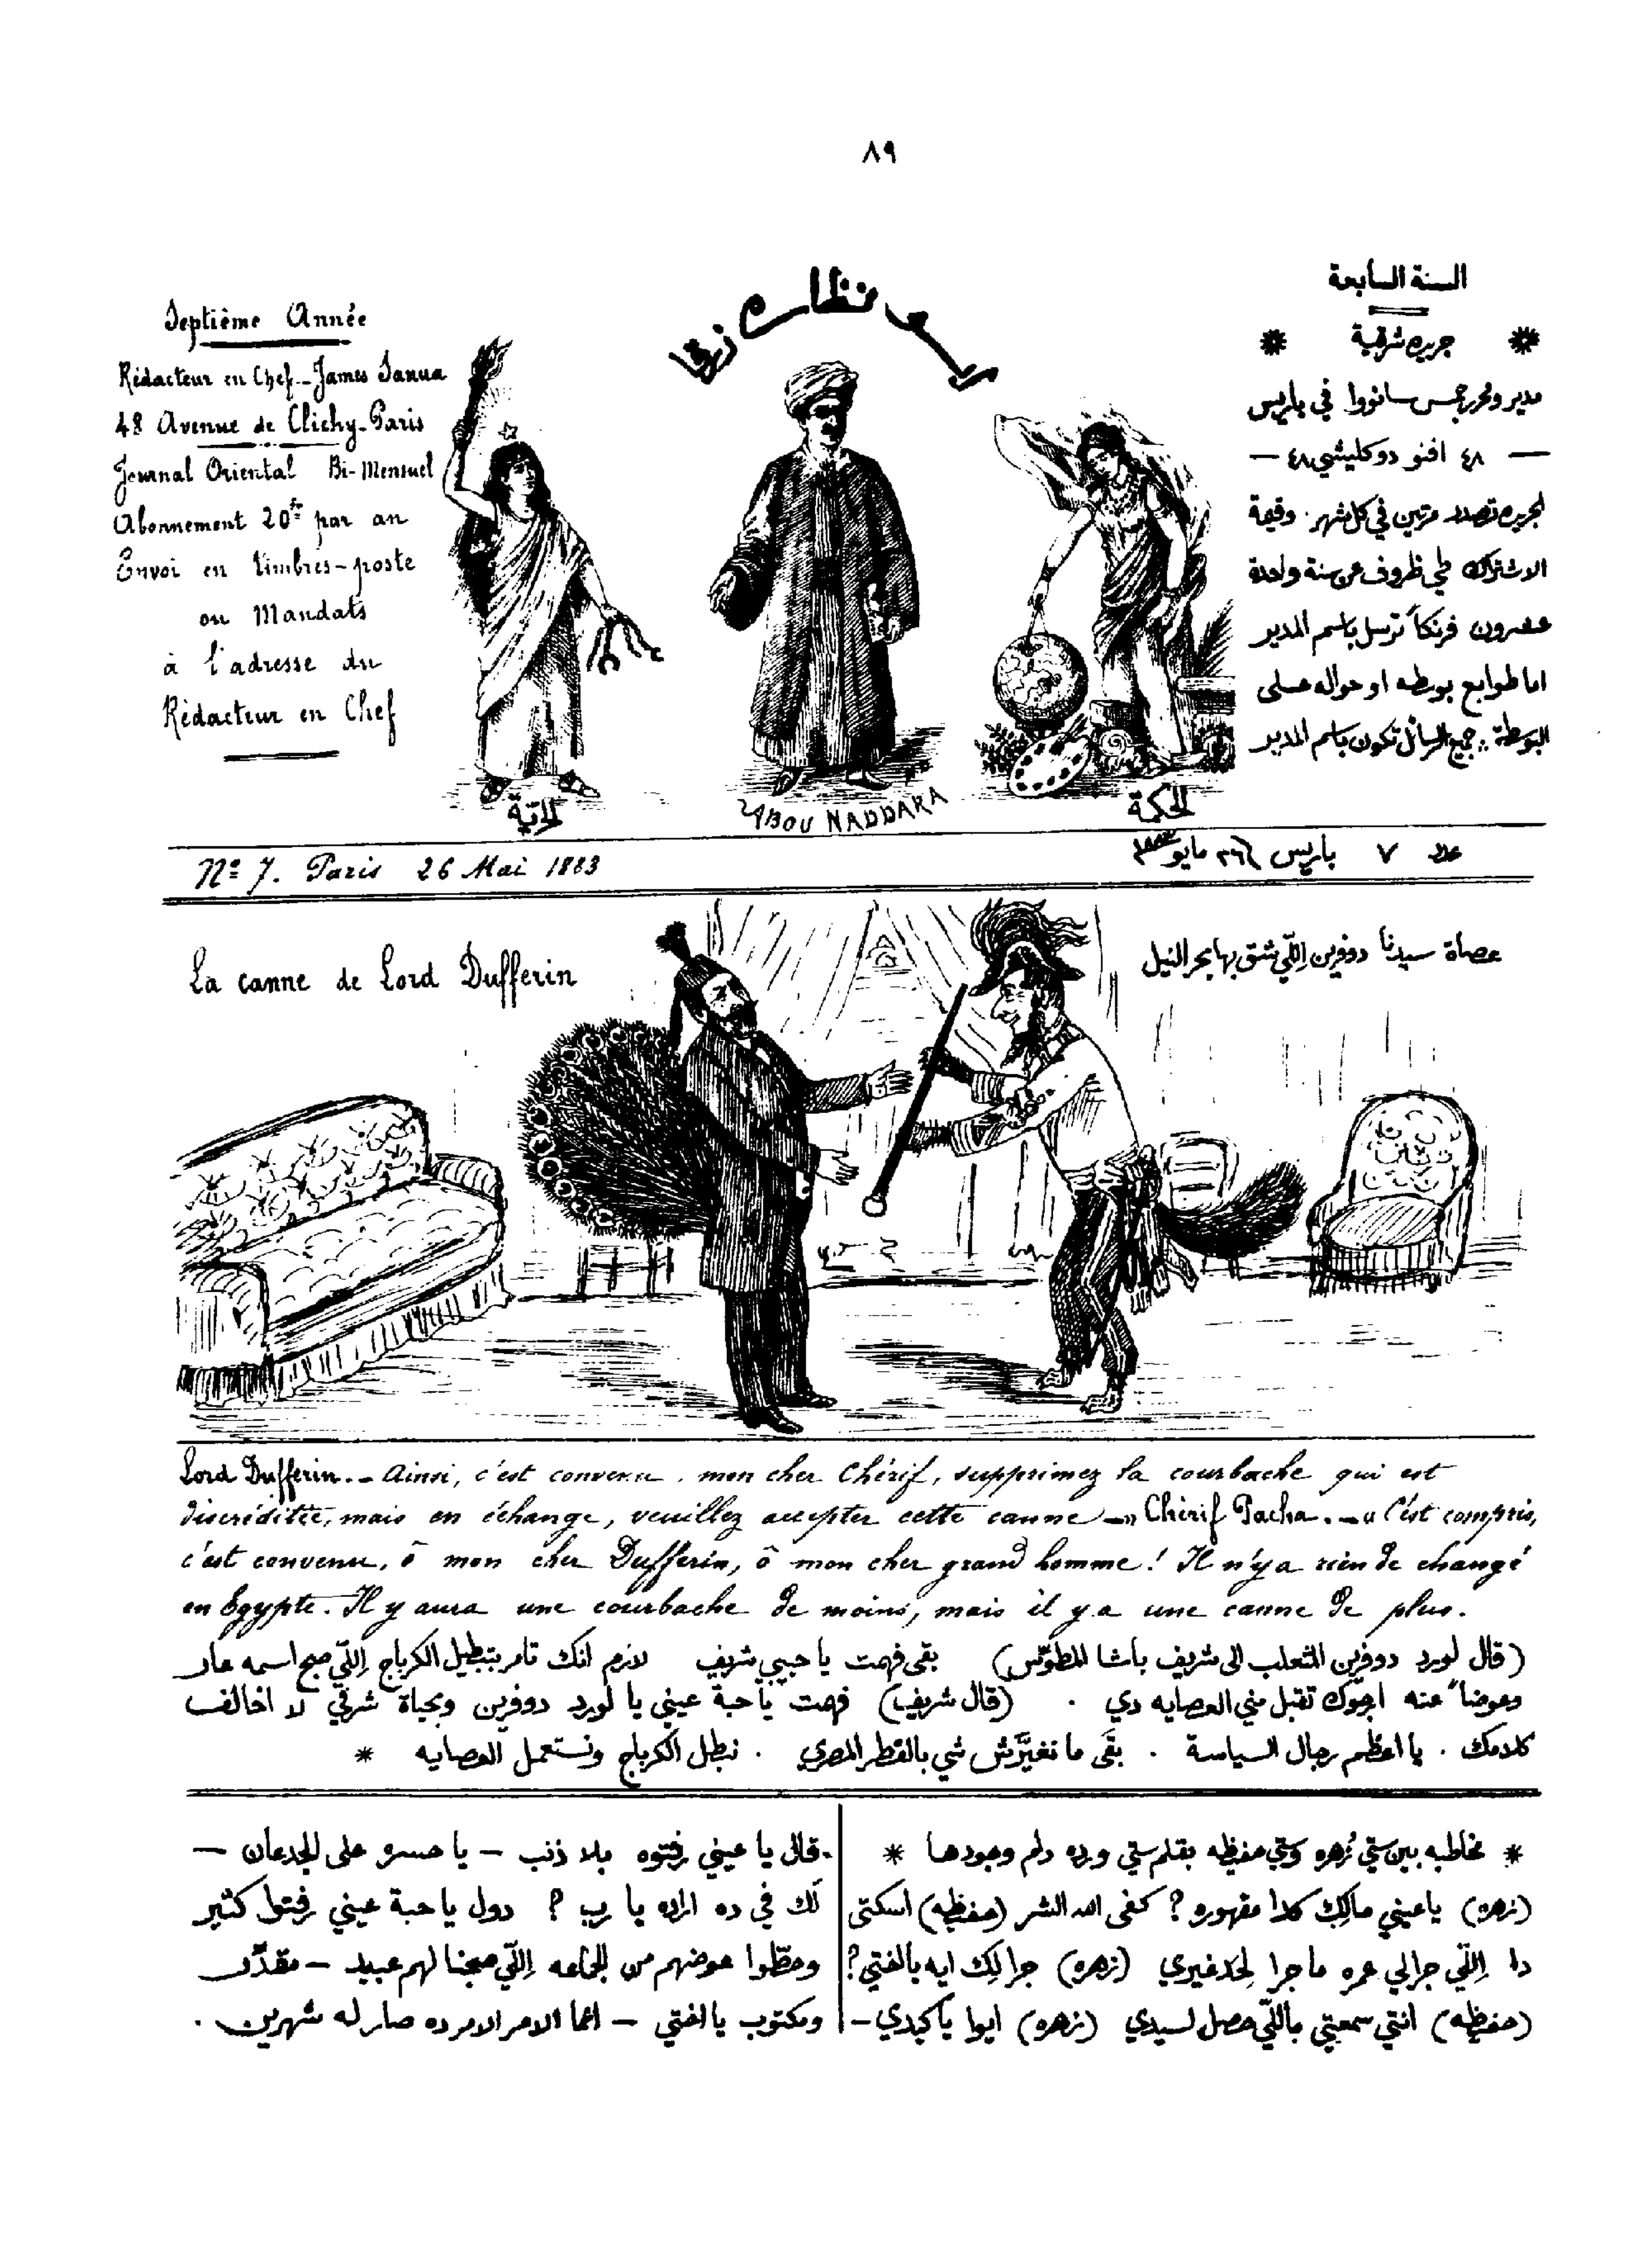 ٨٩
Septième Année
Rédacteur en Chef _ James Sanua
48 Avenue de Clichy-Paris
Journal Oriental Bi-Mensuel
Abonnement 20fr par an
Envoi en timbres-poste
ou Mandats
à l'adresse du
Rédacteur en Chef
نظارة زرقا
السنة السابعة
جريدة شرقية
مدير ومحرر جمس سانووا في باريس
— ٤٨ افنو دو كليشي ٤٨ —
الجريدة تصدر مرتين في كل شهر . وقيمة
الاشتراك طي ظروف عن سنة واحدة
عشرون فرنكاً ترسل باسم المدير
اما طوابع بوسطه او حواله على
البوسطة .. جميع الرسائل تكون باسم المدير
الحرّية
ABOU NADDARA
الحكمة
Nº 7. Paris 26 Mai 1883
عدد ٧ باريس ٢٦ مايو ١٨٨٣
La canne de Lord Dufferin
عصاة سيدنا دوفرين اللّي شق بها بحر النيل
Lord Dufferin. _ Ainsi, c'est convenu, mon cher Chérif, supprimez la courbache qui est
discréditée, mais en échange, veuillez accepter cette canne _" Chérif Pacha. _" C'est compris,
c'est convenu, ô mon cher Dufferin, ô mon cher grand homme! Il n'y a rien de changé
en Egypte. Il y aura une courbache de moins, mais il y a une canne de plus.
(قال لورد دوفرين المثعلب الى شريف باشا المطوّس) بقى فهمت يا حبيبي شريف لازم انك تامر بتبطيل الكرباج اللّي صبح اسمه عار
وعوضاً عنه ارجوك تقبل مني العصايه دي . (قال شريف) فهمت يا حبة عيني يا لورد دوفرين وبحياة شرفي لا اخالف
كلامك . يا اعظم رجال السياسة . بقَى ما تغيّرش شي بالقطر المصري . نبطل الكرباج ونستعمل العصايه *
* مخاطبه بين ستي زُهره وستي حفيظه بقلم ستي ورده دام وجودها *
(زهره) يا عيني مالِك كدا مقهوره ? كفى الله الشر (حفيظه) اسكتى
دا اللّي جرالي عمره ما جرا لحد غيري (زهره) جرالِك ايه يا اختي ?
(حفيظه) انتي سمعتي باللّي حصل لسيدي (زهره) ايوا يا كبدي —
قال يا عيني رفتوه بلا ذنب — يا حسره على الجدعان —
لَك في ده اراده يا رب ? دول يا حبة عيني رفتوا كثير
وحطّوا عوضهم من الجماعه اللّي صبحنا لهم عبيد — مقدّر
ومكتوب يا اختي — انما الامر الامر ده صار له شهرين .